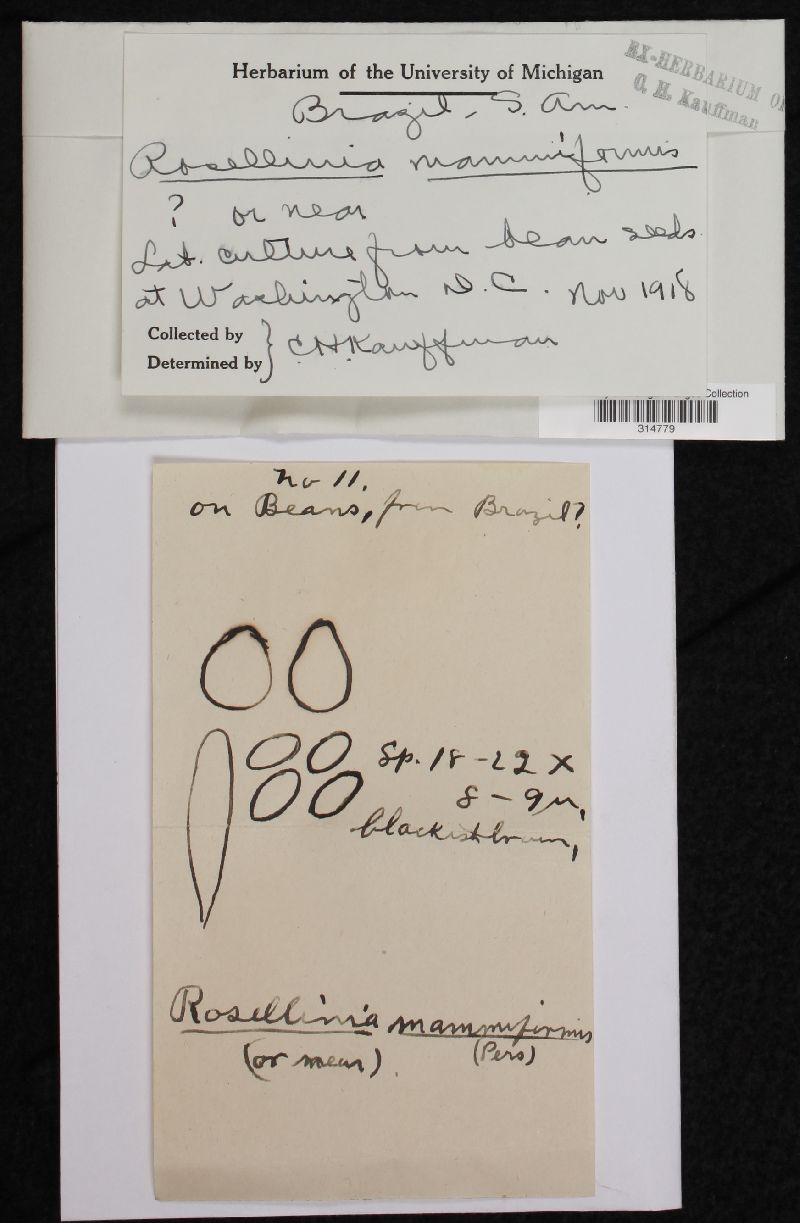 Herbarium of the University of Michigan
EX-HERBARIUM OF
C. H. Kauffman
Brazil, S. Am.
Rosellinia mammiformis
? or near
Lab. culture from bean seeds.
at Washington D.C. Nov 1918
Collected by
Determined by
C H Kauffman
Collection
314779
no 11.
on Beans, from Brazil?
Sp. 18-22 x
8-9µ,
blackish brown,
Rosellinia mammiformis
(or near). (Pers)